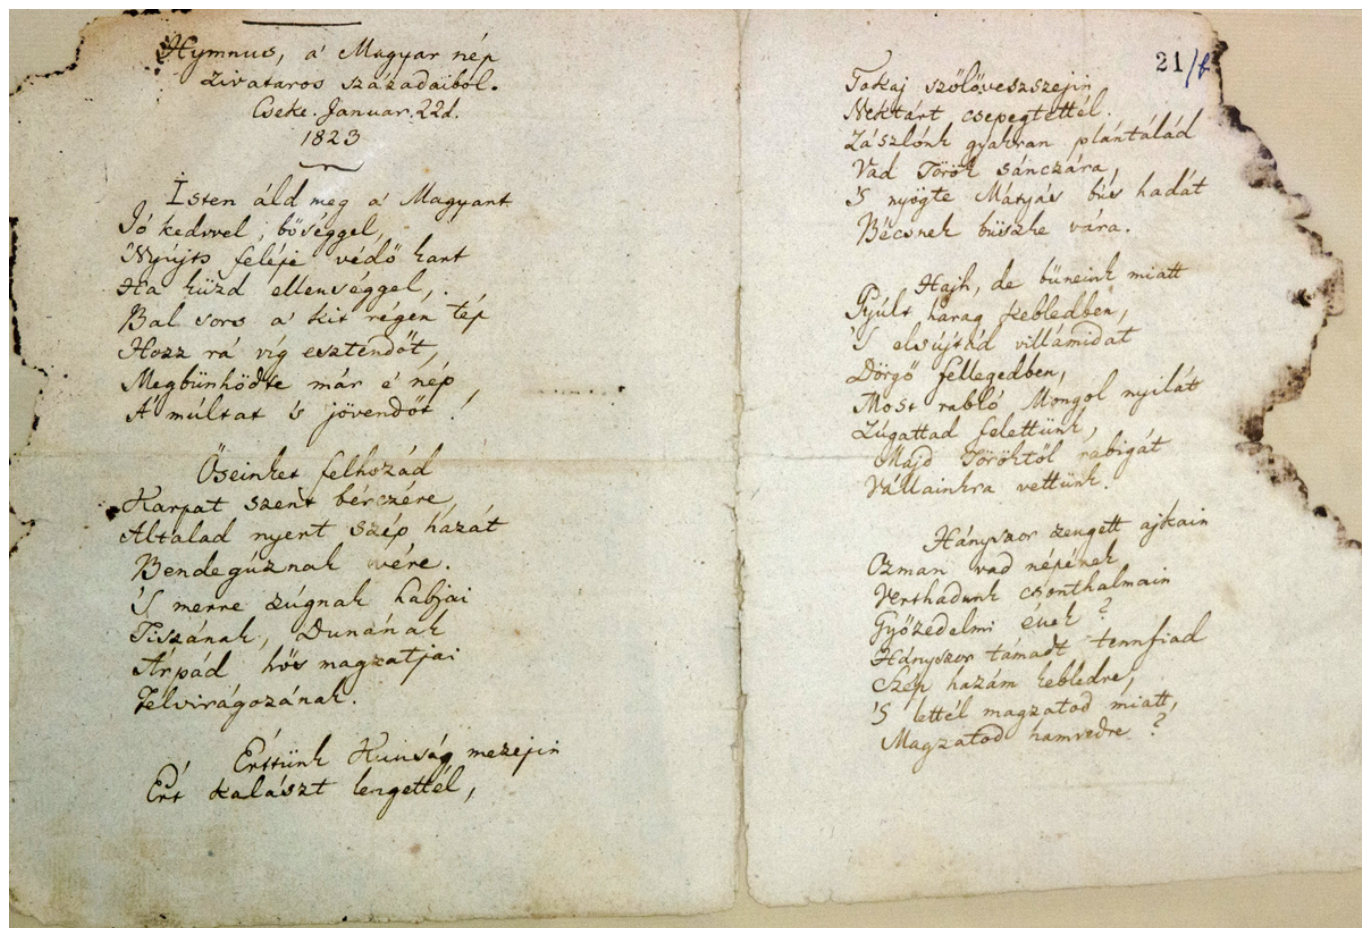 Hymnus, a' Magyar nép
zivataros századaiból.
Cseke. Januar. 22d.
1823
Isten áld meg a' Magyart
Jó kedvvel, bőséggel,
Nyújts feléje védő kart
Ha küzd ellenséggel,
Bal sors a' kit régen tép
Hozz rá víg esztendőt,
Megbünhödte már e' nép
A' múltat 's jövendőt!
Őseinket felhozád
Karpat szent bérczére,
Általad nyert szép hazát
Bendegúznak vére.
'S merre zúgnak habjai
Tiszának, Dunának
Árpád hős magzatjai
Felvirágozának.
Értünk Kunság mezejin
Ért kalászt lengettél,
21/f
Tokaj szőlőveszszejin
Nektárt csepegtettél.
Zászlónk gyakran plántálád
Vad Török sánczára,
'S nyögte Mátyás bús hadát
Bécsnek büszke vára.
Hajh, de bűneink miatt
Gyúlt harag kebledben,
'S elsújtád villámidat
Dörgő fellegedben,
Most rabló Mongol nyilát
Zúgattad felettünk,
Majd Töröktől rabigát
Vállainkra vettünk.
Hányszor zengett ajkain
Ozman vad népének
Vert hadunk csonthalmain
Győzedelmi ének?
Hányszor támadt tennfiad
Szép hazám kebledre,
'S lettél magzatod miatt,
Magzatod hamvedre?